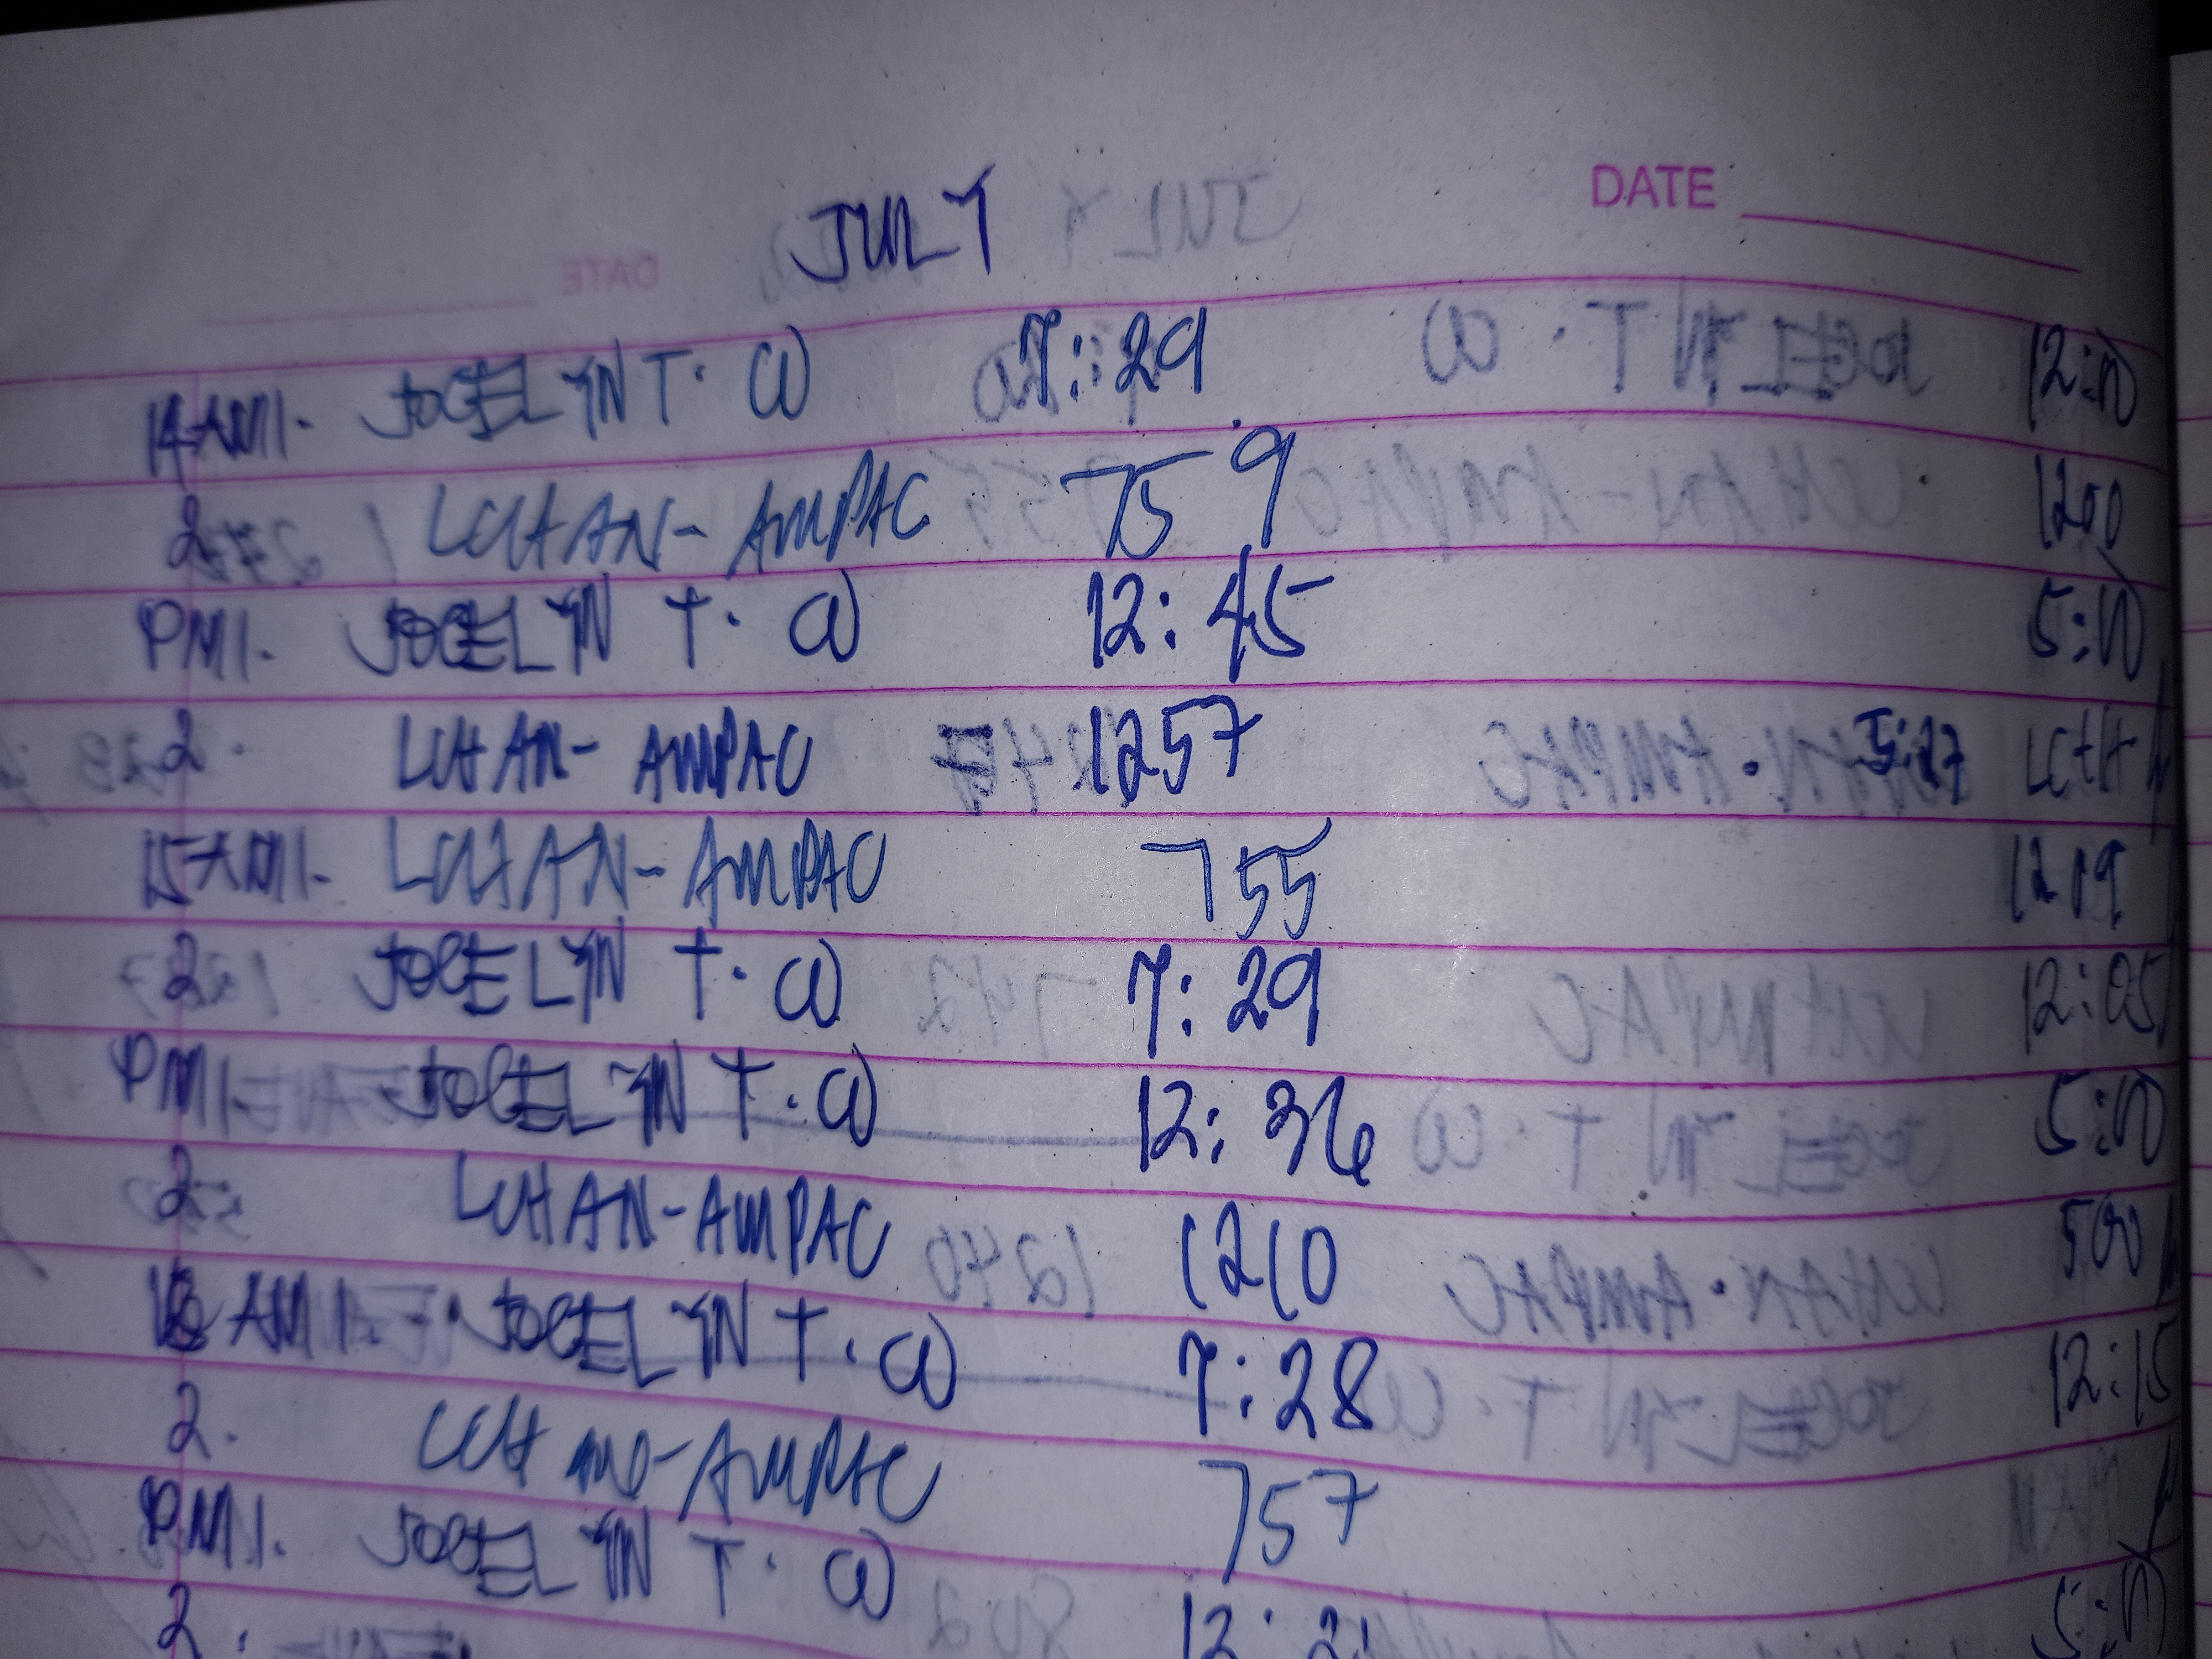 JULY
DATE
14 AM 1. JOCELYN T. W 7:29 12:00
2 LCHAN-AMPAC 759 1200
PM 1. JOCELYN T. W 12:45 5:00
2. LCHAN-AMPAC 1257 5:27
15 AM 1. LCHAN-AMPAC 755 1209
2 JOCELYN T. W 7:29 12:05
PM 1. JOCELYN T. W 12:36 5:00
2 LCHAN-AMPAC 1210 500
16 AM 1. JOCELYN T. W 7:28 12:15
2. AMPAC 757
PM 1. JOCELYN T. W 5:00
2.